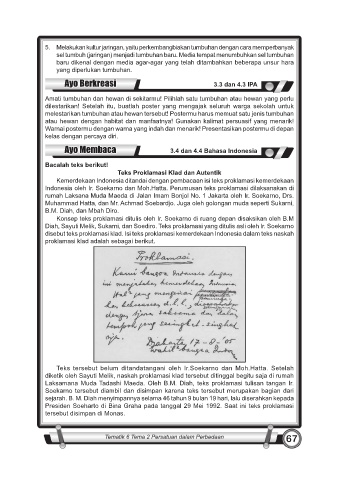 5. Melakukan kultur jaringan, yaitu perkembangbiakan tumbuhan dengan cara memperbanyak
sel tumbuh (jaringan) menjadi tumbuhan baru. Media tempat menumbuhkan sel tumbuhan
baru dikenal dengan media agar-agar yang telah ditambahkan beberapa unsur hara
yang diperlukan tumbuhan.
Ayo Berkreasi 3.3 dan 4.3 IPA
Amati tumbuhan dan hewan di sekitarmu! Pilihlah satu tumbuhan atau hewan yang perlu
dilestarikan! Setelah itu, buatlah poster yang mengajak seluruh warga sekolah untuk
melestarikan tumbuhan atau hewan tersebut! Postermu harus memuat satu jenis tumbuhan
atau hewan dengan habitat dan manfaatnya! Gunakan kalimat persuasif yang menarik!
Warnai postermu dengan warna yang indah dan menarik! Presentasikan postermu di depan
kelas dengan percaya diri.
Ayo Membaca 3.4 dan 4.4 Bahasa Indonesia
Bacalah teks berikut!
Teks Proklamasi Klad dan Autentik
Kemerdekaan Indonesia ditandai dengan pembacaan isi teks proklamasi kemerdekaan
Indonesia oleh Ir. Soekarno dan Moh.Hatta. Perumusan teks proklamasi dilaksanakan di
rumah Laksana Muda Maeda di Jalan Imam Bonjol No. 1 Jakarta oleh Ir. Soekarno, Drs.
Muhammad Hatta, dan Mr. Achmad Soebardjo. Juga oleh golongan muda seperti Sukarni,
B.M. Diah, dan Mbah Diro.
Konsep teks proklamasi ditulis oleh Ir. Soekarno di ruang depan disaksikan oleh B.M
Diah, Sayuti Melik, Sukarni, dan Soediro. Teks proklamasi yang ditulis asli oleh Ir. Soekarno
disebut teks proklamasi klad. Isi teks proklamasi kemerdekaan Indonesia dalam teks naskah
proklamasi klad adalah sebagai berikut.
Proklamasi.
Kami bangsa Indonesia dengan
ini menjatakan kemerdekaan Indonesia.
Hal2 jang mengenai
kekoeasaan d.l.l., diselenggarakan
dengan tjara saksama dan dalam
tempoh jang sesingkat-singkat
nja.
Djakarta 17-8-'05
Wakil2 bangsa Indon.
Teks tersebut belum ditandatangani oleh Ir.Soekarno dan Moh.Hatta. Setelah
diketik oleh Sayuti Melik, naskah proklamasi klad tersebut ditinggal begitu saja di rumah
Laksamana Muda Tadashi Maeda. Oleh B.M. Diah, teks proklamasi tulisan tangan Ir.
Soekarno tersebut diambil dan disimpan karena teks tersebut merupakan bagian dari
sejarah. B. M. Diah menyimpannya selama 46 tahun 9 bulan 19 hari, lalu diserahkan kepada
Presiden Soeharto di Bina Graha pada tanggal 29 Mei 1992. Saat ini teks proklamasi
tersebut disimpan di Monas.
Tematik 6 Tema 2 Persatuan dalam Perbedaan 67